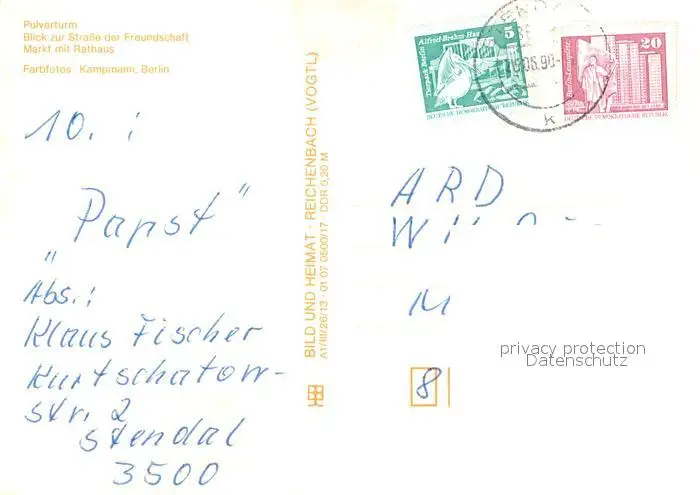 Pulverturm
Blick zur Straße der Freundschaft
Markt mit Rathaus
Farbfotos Kampmann, Berlin
10. :
"Papst"
Abs.:
Klaus Fischer
Kurtschatow-
str. 2
Stendal
3500
BILD UND HEIMAT · REICHENBACH (VOGTL)
A1/III/26/13 · 01 07 0500/17 · DDR 0,20 M
Alfred-Brehm Haus
5
Tierpark Berlin
DEUTSCHE DEMOKRATISCHE REPUBLIK
20
Berlin-Leninplatz
DEMOKRATISCHE REPUBLIK
05.90
k
ARD
M
8
privacy protection
Datenschutz